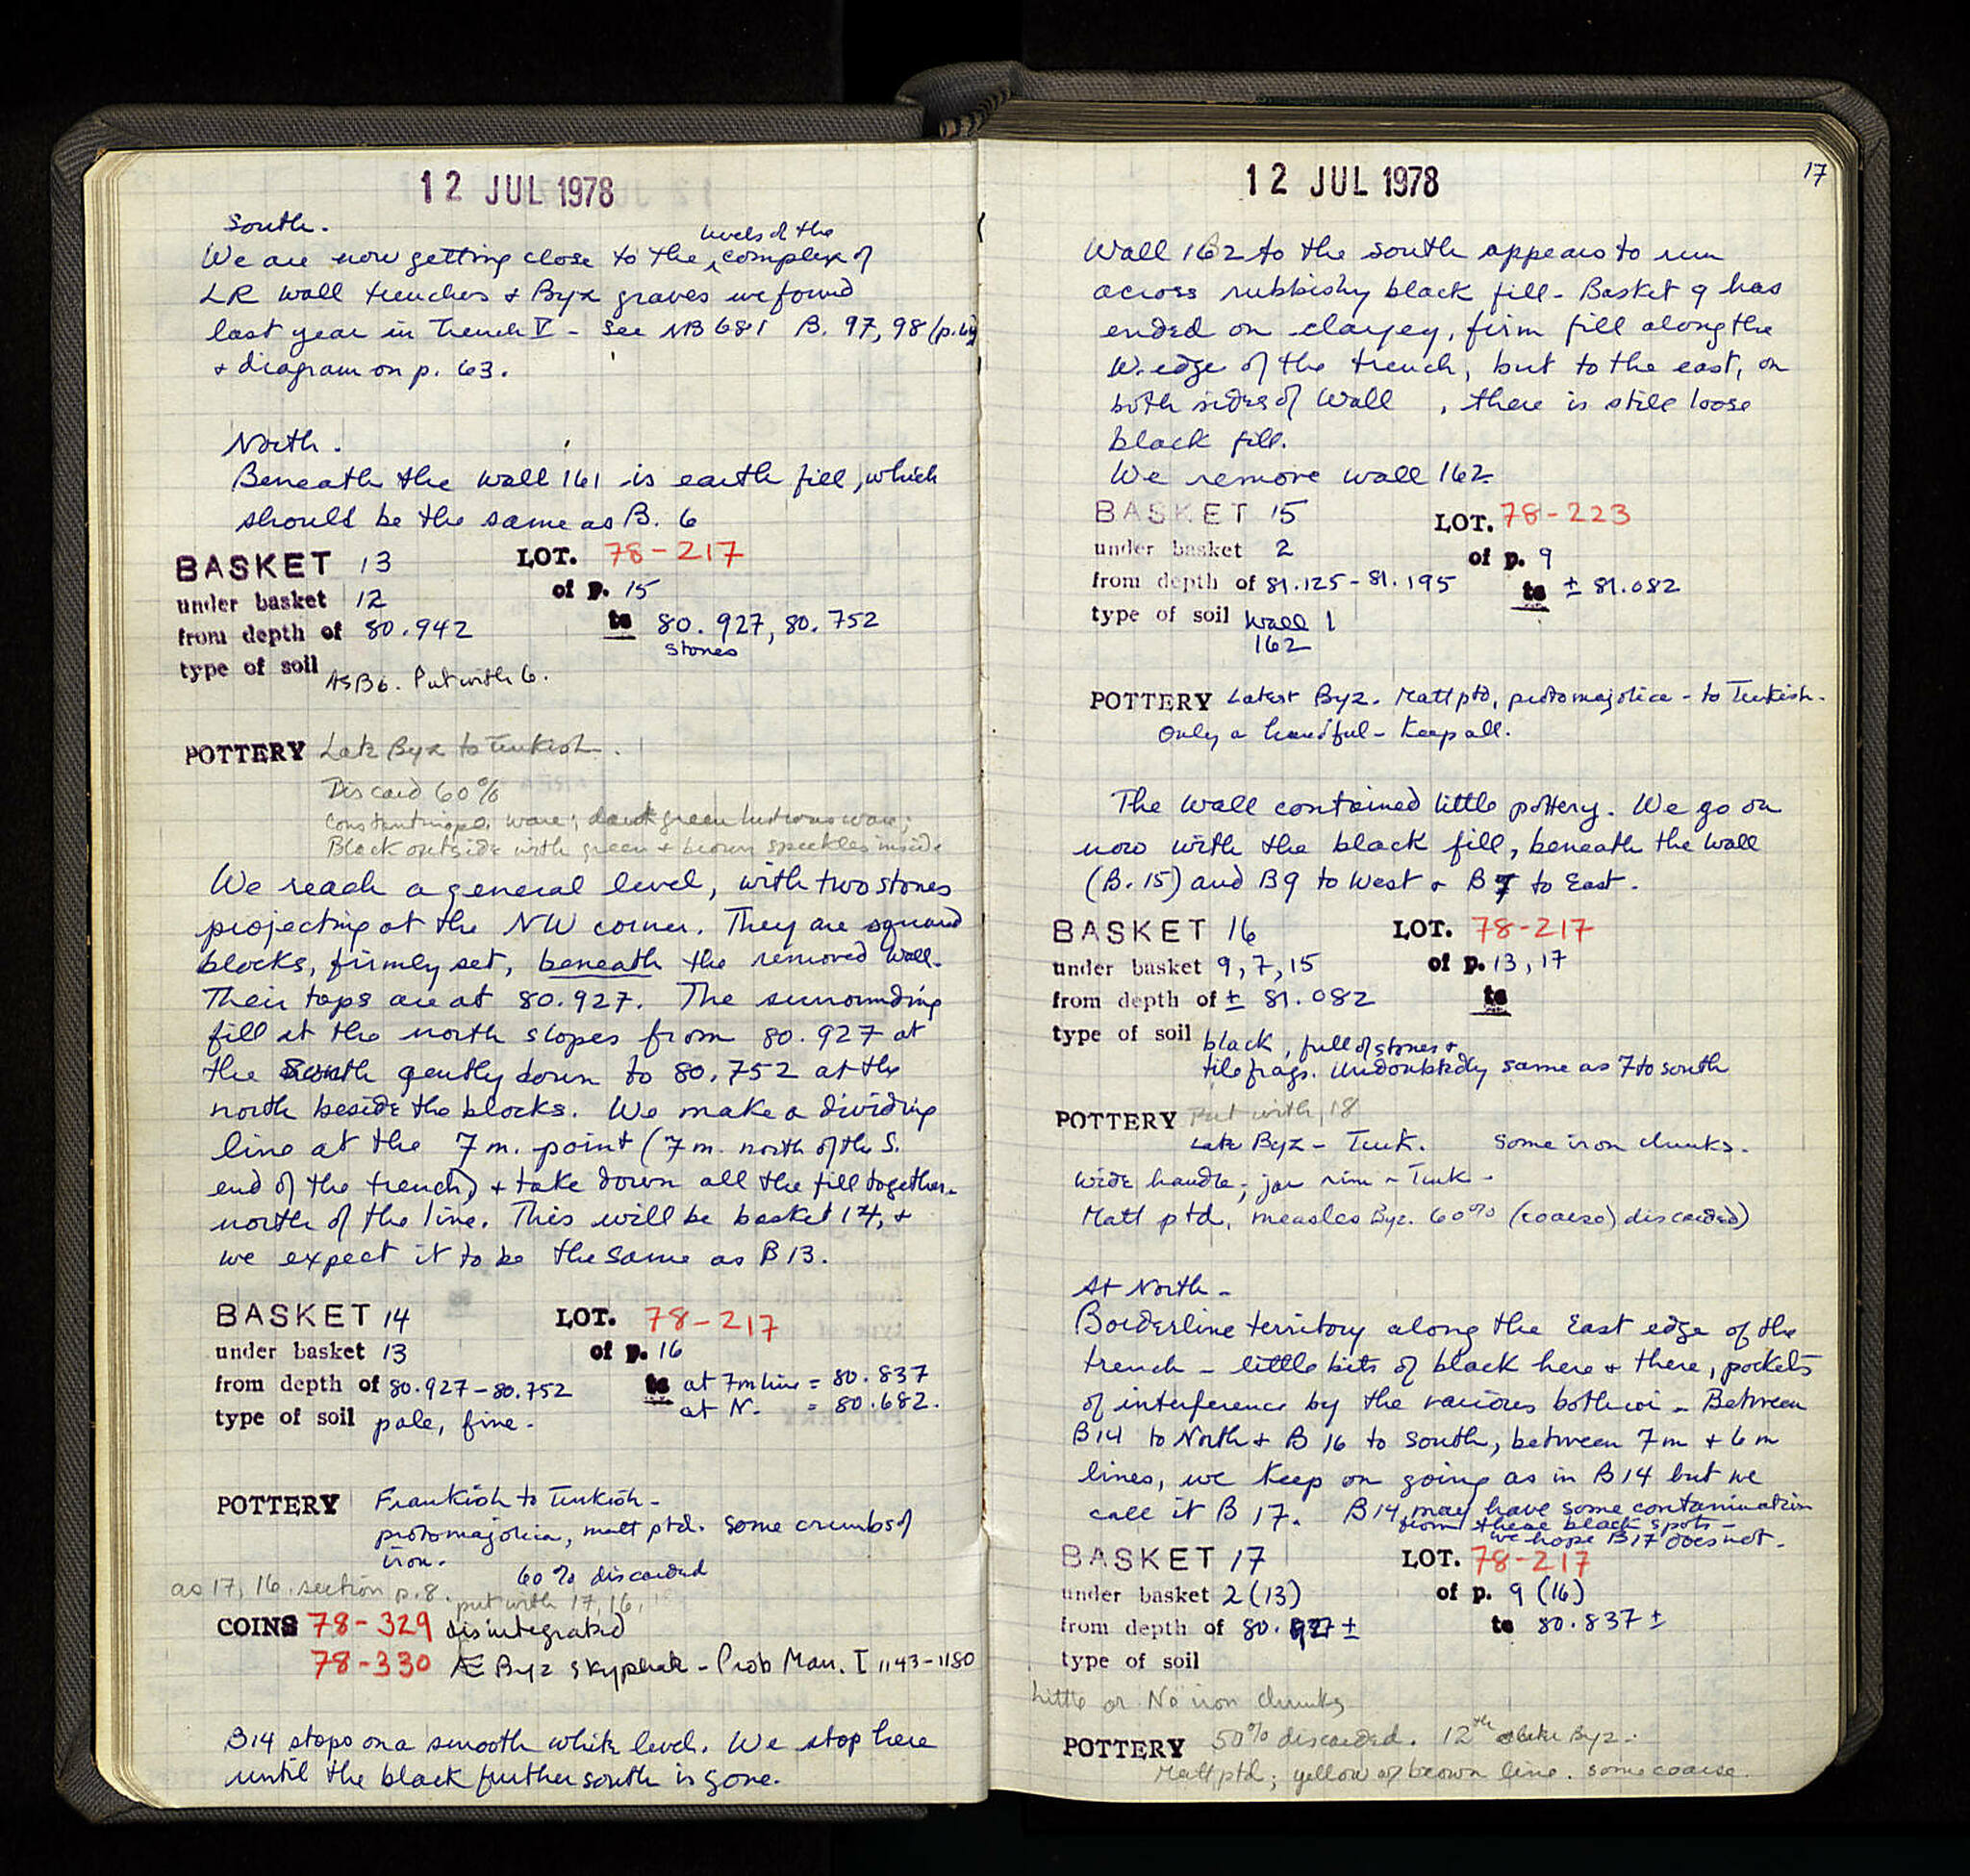 12 JUL 1978
South.
We are now getting close to the levels of the complex of
LR wall trenches + Byz graves we found
last year in Trench V - See NB 681 B. 97, 98 (p.
+ diagram on p. 63.
North.
Beneath the wall 161 is earth fill, which
should be the same as B. 6
BASKET 13 LOT. 78-217
under basket 12 of p. 15
from depth of 80.942 to 80.927, 80.752
stones
type of soil As B6. Put with 6.
POTTERY Late Byz to Turkish.
Discard 60%
ware; dark green lustrous ware;
Black outside with green + brown speckles inside
We reach a general level, with two stones
projecting at the NW corner. They are squared
blocks, firmly set, beneath the removed wall.
Their tops are at 80.927. The surrounding
fill at the north slopes from 80.927 at
the South gently down to 80.752 at the
north beside the blocks. We make a dividing
line at the 7 m. point (7 m. north of the S.
end of the trench) + take down all the fill together
north of the line. This will be basket 14, +
we expect it to be the same as B 13.
BASKET 14 LOT. 78-217
under basket 13 of p. 16
from depth of 80.927-80.752 to at 7m line = 80.837
at N. = 80.682.
type of soil pale, fine.
POTTERY Frankish to Turkish -
protomajolica, matt ptd. Some crumbs of
iron.
60% discarded
as 17, 16. section p. 8. put with 17, 16,
COINS 78-329 disintegrated
78-330 Æ Byz skyphate - Prob Man. I 1143-1180
B14 stops on a smooth white level. We stop here
until the black further south is gone.
17
12 JUL 1978
Wall 162 to the south appears to run
across rubbishy black fill - Basket 9 has
ended on clayey, firm fill along the
W. edge of the trench, but to the east, on
both sides of Wall , there is still loose
black fill.
We remove wall 162
BASKET 15 LOT. 78-223
under basket 2 of p. 9
from depth of 81.125-81.195 to ± 81.082
type of soil Wall
162
POTTERY Latest Byz. Matt ptd, protomajolica - to Turkish.
Only a handful - Keep all.
The wall contained little pottery. We go on
now with the black fill, beneath the wall
(B. 15) and B9 to West + B 7 to East.
BASKET 16 LOT. 78-217
under basket 9, 7, 15 of p. 13, 17
from depth of ± 81.082 to
type of soil black, full of stones +
tile frags. Undoubtedly same as 7 to south
POTTERY Put with 18
Late Byz - Turk. Some iron chunks.
Wide handle; jar rim - Turk -
Matt ptd, measles Byz. 60% (coarse) discarded)
At North -
Borderline territory along the East edge of the
trench - little bits of black here + there, pockets
of interference by the various bothroi - Between
B14 to North + B 16 to South, between 7 m + 6 m
lines, we keep on going as in B14 but we
call it B 17. B14 may have some contamination
from these black spots -
we hope B17 does not.
BASKET 17 LOT. 78-217
under basket 2 (13) of p. 9 (16)
from depth of 80.927 ± to 80.837 ±
type of soil
Little or No iron chunks
POTTERY 50% discarded. 12th late Byz.
Matt ptd; yellow brown line. some coarse.